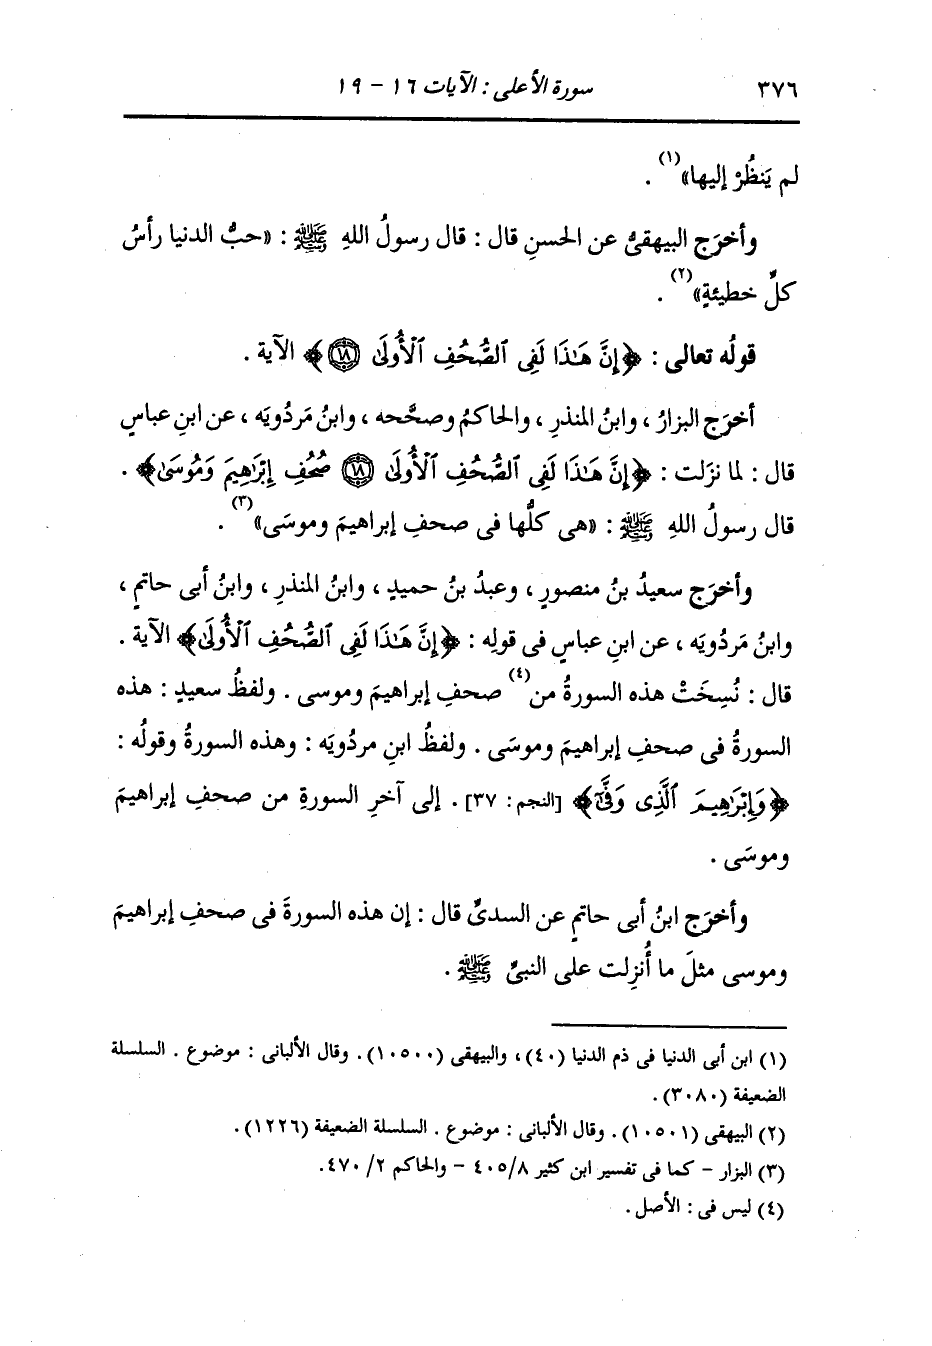 ٣٧٦ سورة الأعلى : الآيات ١٦ - ١٩
لم يَنظُرْ إليها»(١) .
وأخرَج البيهقىُّ عن الحسنِ قال : قال رسولُ اللهِ ﷺ : «حبُّ الدنيا رأسُ
كلِّ خطيئةٍ»(٢) .
قولُه تعالى : ﴿إِنَّ هَٰذَا لَفِى ٱلصُّحُفِ ٱلْأُولَىٰ ١٨﴾ الآية .
أخرَج البزارُ ، وابنُ المنذرِ ، والحاكمُ وصحَّحه ، وابنُ مَردُويَه ، عن ابنِ عباسٍ
قال : لما نزَلت : ﴿إِنَّ هَٰذَا لَفِى ٱلصُّحُفِ ٱلْأُولَىٰ ١٨ صُحُفِ إِبْرَٰهِيمَ وَمُوسَىٰ﴾ .
قال رسولُ اللهِ ﷺ : «هى كلُّها فى صحفِ إبراهيمَ وموسَى»(٣) .
وأخرَج سعيدُ بنُ منصورٍ ، وعبدُ بنُ حميدٍ ، وابنُ المنذرِ ، وابنُ أبى حاتمٍ ،
وابنُ مَردُويَه ، عن ابنِ عباسٍ فى قولِه : ﴿إِنَّ هَٰذَا لَفِى ٱلصُّحُفِ ٱلْأُولَىٰ﴾ الآية .
قال : نُسِخَتْ هذه السورةُ من(٤) صحفِ إبراهيمَ وموسى . ولفظُ سعيدٍ : هذه
السورةُ فى صحفِ إبراهيمَ وموسَى . ولفظُ ابنِ مردُويَه : وهذه السورةُ وقولُه :
﴿وَإِبْرَٰهِيمَ ٱلَّذِى وَفَّىٰٓ﴾ [النجم: ٣٧] . إلى آخرِ السورةِ من صحفِ إبراهيمَ
وموسَى .
وأخرَج ابنُ أبى حاتمٍ عن السدىِّ قال : إن هذه السورةَ فى صحفِ إبراهيمَ
وموسى مثلَ ما أُنزِلت على النبىِّ ﷺ .
(١) ابن أبى الدنيا فى ذم الدنيا (٤٠) ، والبيهقى (١٠٥٠٠) . وقال الألبانى : موضوع . السلسلة
الضعيفة (٣٠٨٠) .
(٢) البيهقى (١٠٥٠١) . وقال الألبانى : موضوع . السلسلة الضعيفة (١٢٢٦) .
(٣) البزار - كما فى تفسير ابن كثير ٤٠٥/٨ - والحاكم ٤٧٠/٢ .
(٤) ليس فى : الأصل .